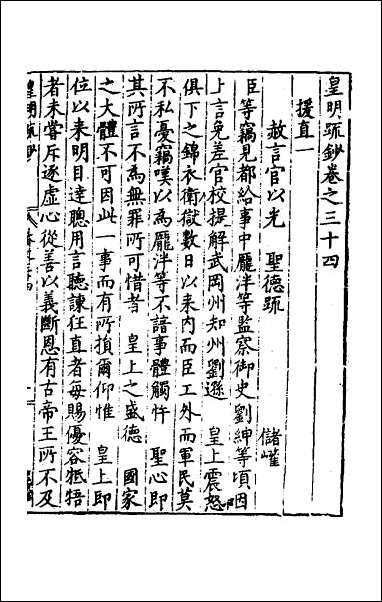 皇明疏鈔卷之三十四
援直一
赦言官以光　聖德疏　儲巏
臣等竊見都給事中龐泮等監察御史劉紳等頃因
上言免差官校提解武岡州知州劉遜　皇上震怒
俱下之錦衣衛獄數日以來內而臣工外而軍民莫
不私憂竊嘆以為龐泮等不諳事體觸忤　聖心即
其所言不為無罪所可惜者　皇上之盛德　國家
之大體不可因此一事而有所損爾仰惟　皇上即
位以來明目達聰用言聽諫任直者每賜優容牴牾
者未嘗斥逐虛心從善以義斷恩有古帝王所不及